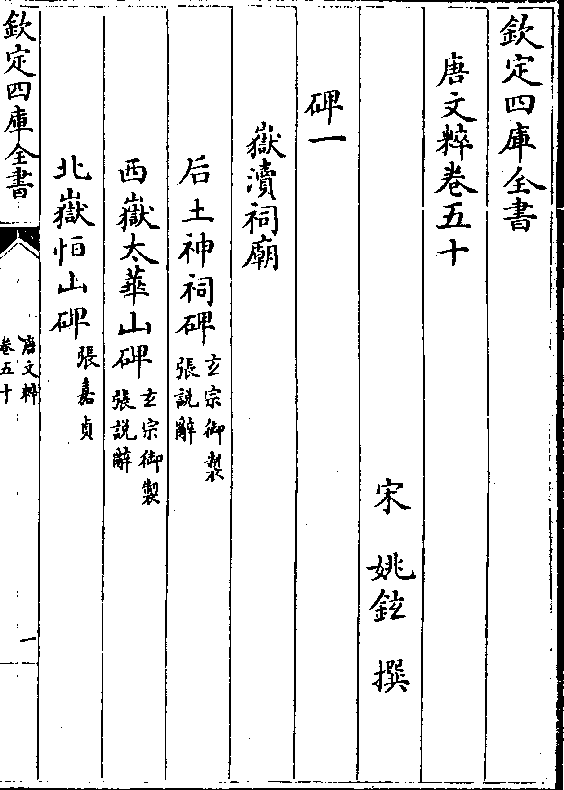 欽定四庫全書
唐文粹卷五十
宋 姚鉉 撰
碑一
嶽瀆祠廟
后土神祠碑 玄宗御製 張說辭
西嶽太華山碑 玄宗御製 張說辭
北嶽恒山碑 張嘉貞
欽定四庫全書
唐文粹
卷五十
一